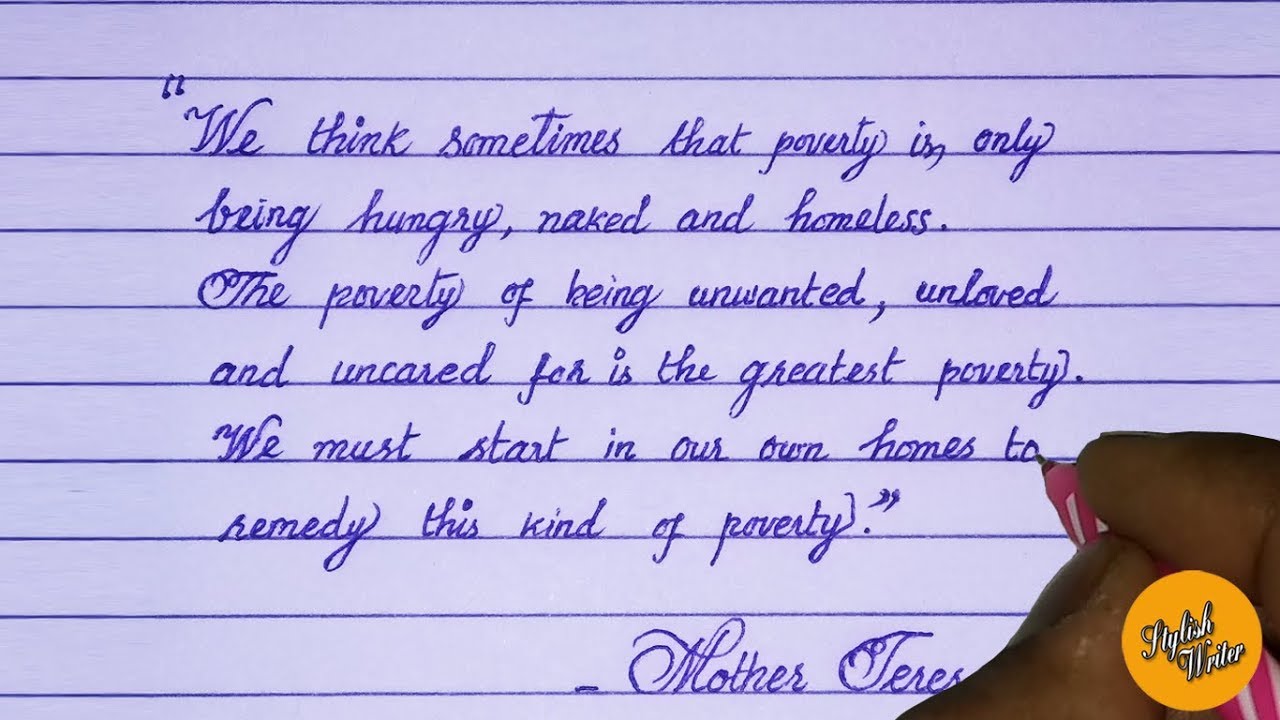 “We think someTimes that poverty is, only
being hungry, naked and homeless.
The poverty of being unwanted, unloved
and uncared for is the greatest poverty.
We must start in our own homes to
remedy this kind of poverty.”
- Mother Teres
Stylish
Writer